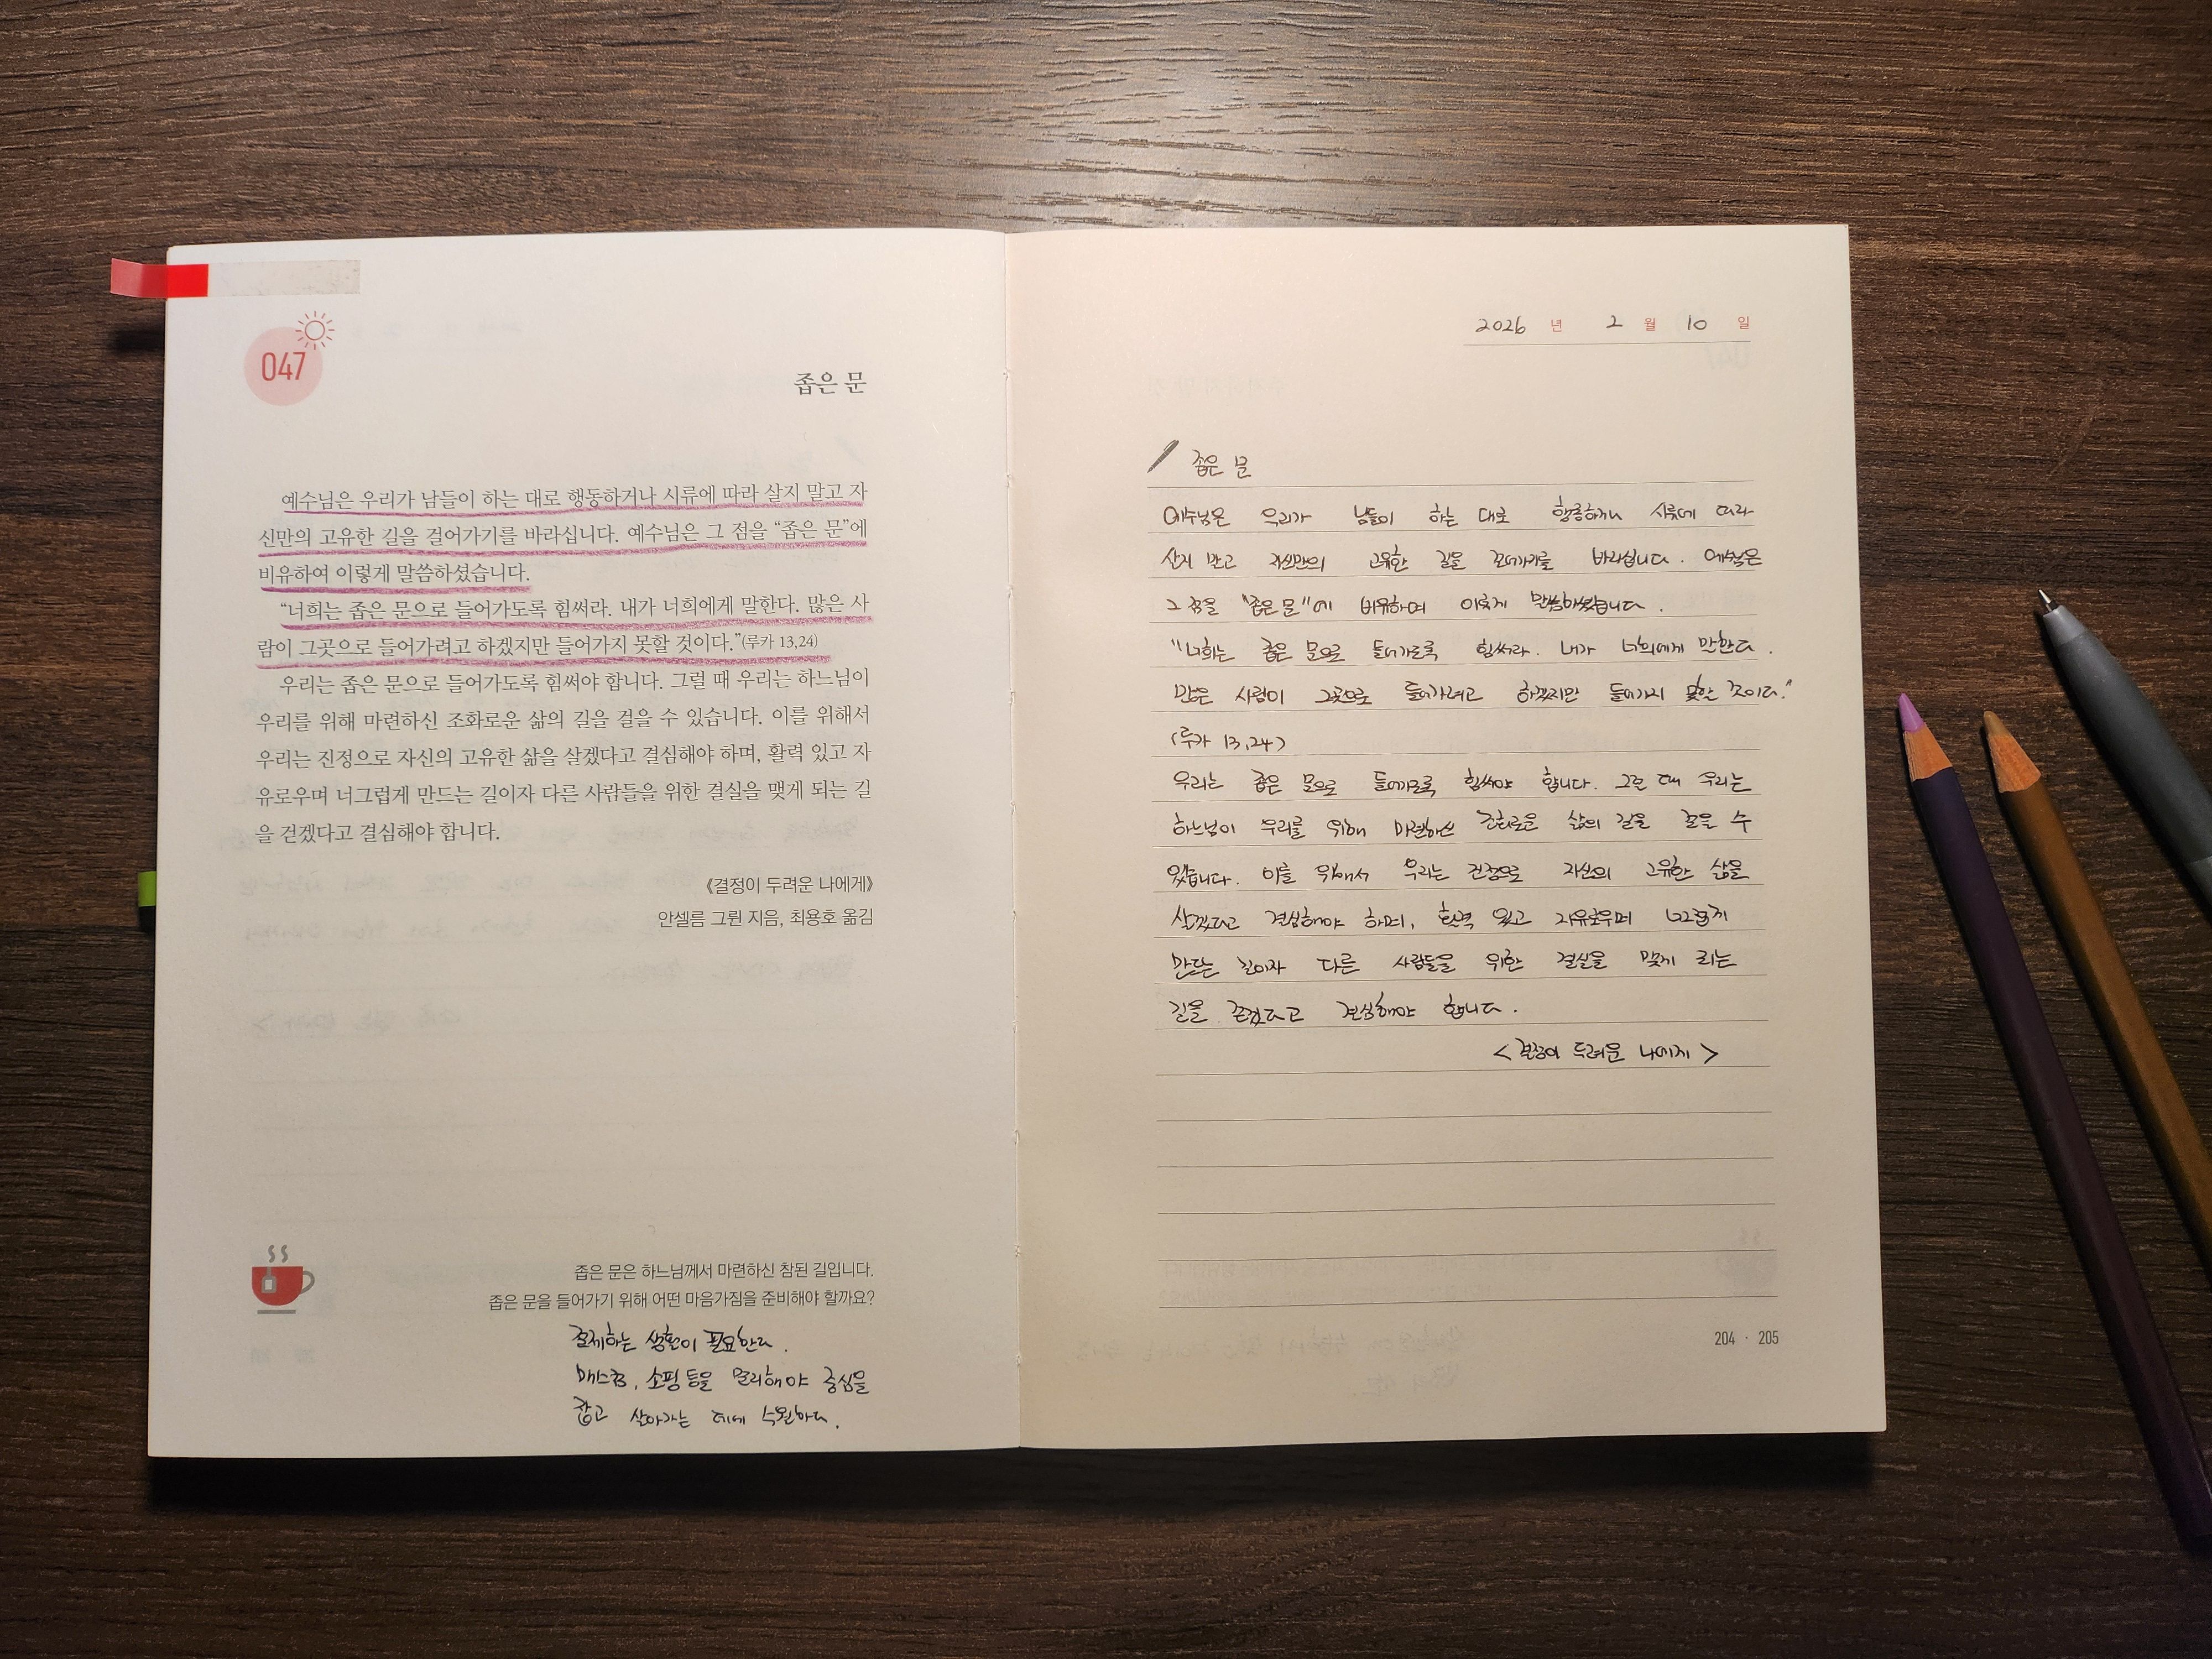 047
좁은 문
예수님은 우리가 남들이 하는 대로 행동하거나 시류에 따라 살지 말고 자
신만의 고유한 길을 걸어가기를 바라십니다. 예수님은 그 점을 “좁은 문”에
비유하여 이렇게 말씀하셨습니다.
“너희는 좁은 문으로 들어가도록 힘써라. 내가 너희에게 말한다. 많은 사
람이 그곳으로 들어가려고 하겠지만 들어가지 못할 것이다.”(루카 13,24)
우리는 좁은 문으로 들어가도록 힘써야 합니다. 그럴 때 우리는 하느님이
우리를 위해 마련하신 조화로운 삶의 길을 걸을 수 있습니다. 이를 위해서
우리는 진정으로 자신의 고유한 삶을 살겠다고 결심해야 하며, 활력 있고 자
유로우며 너그럽게 만드는 길이자 다른 사람들을 위한 결실을 맺게 되는 길
을 걷겠다고 결심해야 합니다.
《결정이 두려운 나에게》
안셀름 그륀 지음, 최용호 옮김
좁은 문은 하느님께서 마련하신 참된 길입니다.
좁은 문을 들어가기 위해 어떤 마음가짐을 준비해야 할까요?
절제하는 생활이 필요한다.
매스컴, 쇼핑 등을 멀리해야 중심을
잡고 살아가는 데에 수월하다.
2026 년 2 월 10 일
좁은 문
예수님은 우리가 남들이 하는 대로 행동하거나 시류에 따라
살지 말고 자신만의 고유한 길을 걸어가기를 바라십니다. 예수님은
그 점을 "좁은 문"에 비유하여 이렇게 말씀하셨습니다.
"너희는 좁은 문으로 들어가도록 힘써라. 내가 너희에게 말한다.
많은 사람이 그곳으로 들어가려고 하겠지만 들어가지 못할 것이다."
(루카 13,24)
우리는 좁은 문으로 들어가도록 힘써야 합니다. 그럴 때 우리는
하느님이 우리를 위해 마련하신 조화로운 삶의 길을 걸을 수
있습니다. 이를 위해서 우리는 진정으로 자신의 고유한 삶을
살겠다고 결심해야 하며, 활력 있고 자유로우며 너그럽게
만드는 길이자 다른 사람들을 위한 결실을 맺게 되는
길을 걷겠다고 결심해야 합니다.
<결정이 두려운 나에게>
204 · 205